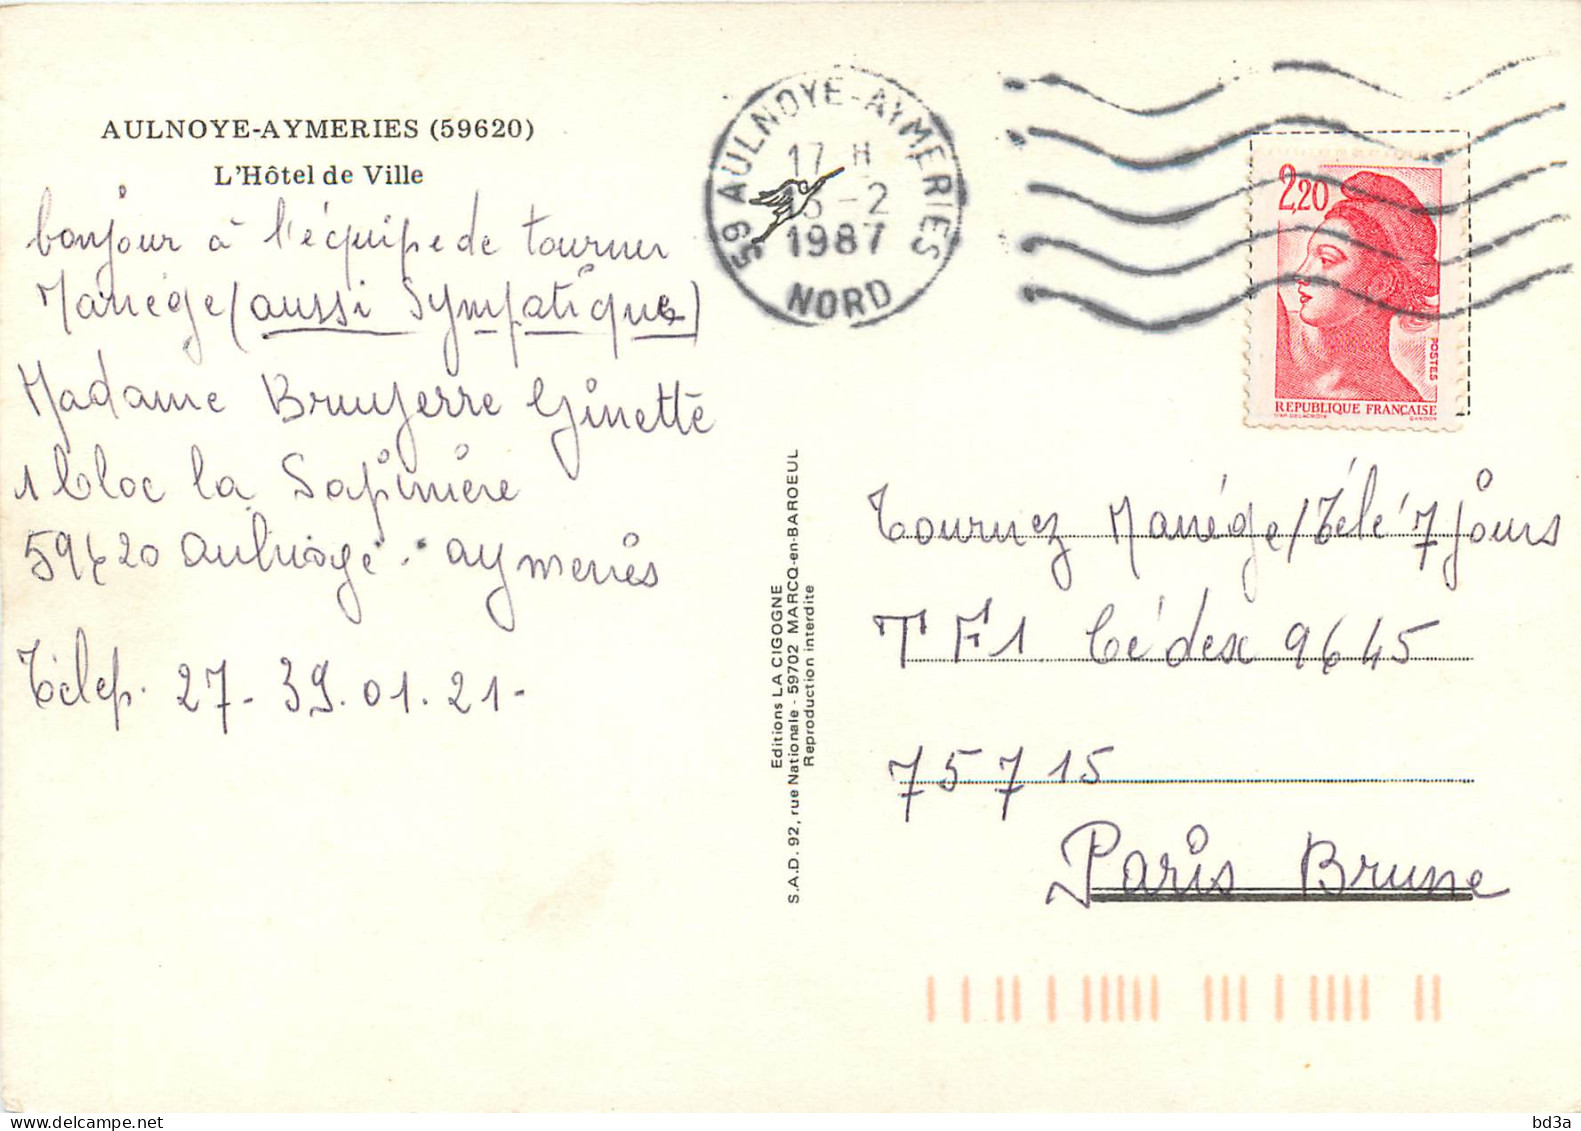 AULNOYE-AYMERIES (59620)
L'Hôtel de Ville
bonjour à l'équipe de tourner
Manége (aussi Sympatique)
Madame Bruyerre Ginette
1 bloc la Sapinière
59620 aulnoye - aymeries
Télep. 27-39.01.21-
59 AULNOYE-AYMERIES
17 H
-2
1987
NORD
2,20
POSTES
REPUBLIQUE FRANÇAISE
D'AP. DELACROIX GANDON
Editions LA CIGOGNE
S.A.D. 92, rue Nationale - 59702 MARCQ-en-BAROEUL
Reproduction interdite
Tournez Manége/Télé 7 jours
TF1 Cédex 9645
75715
Paris Brune
delcampe.net
bd3a